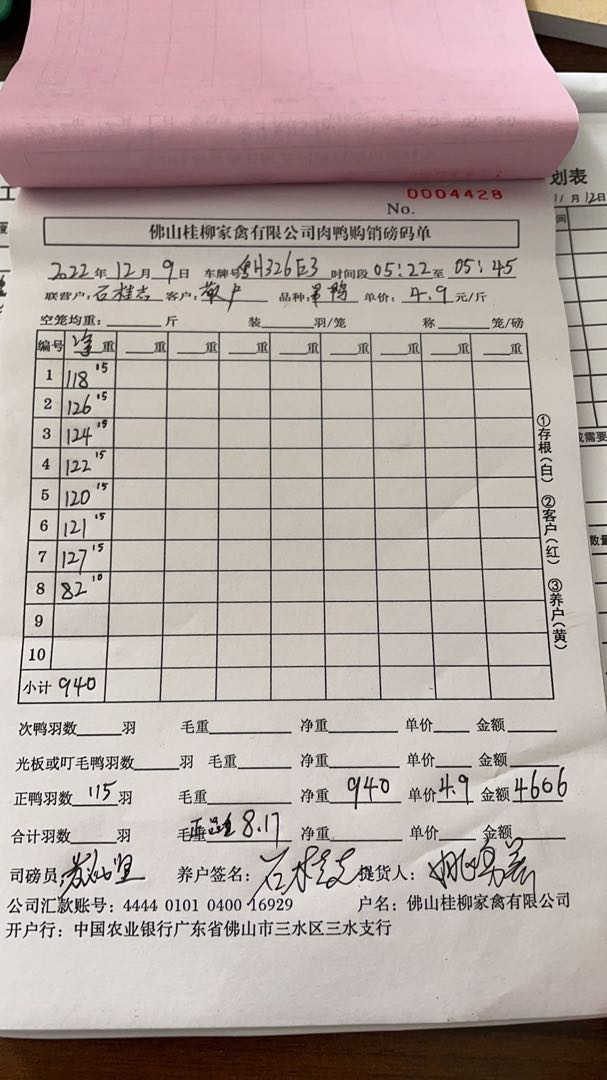 划表
11月12日
0004428
No.
佛山桂柳家禽有限公司肉鸭购销磅码单
2022年12月9日 车牌号粤H326E3 时间段05:22至05:45
联营户:石桂志 客户:散户 品种:单价:4.9元/斤
空笼均重:斤 装羽/笼 称笼/磅
编号 净重 重 重 重 重 重 重 重 重
1 118 15
2 126 15
3 124 15
4 122 15
5 120 15
6 121 15
7 127 15
8 82 10
9
10
小计 940
①存根(白) ②客户(红) ③养户(黄)
次鸭羽数羽 毛重 净重 单价 金额
光板或叮毛鸭羽数羽 毛重 净重 单价 金额
正鸭羽数115羽 毛重 净重940 单价4.9 金额4606
合计羽数羽 毛重 8.17 净重 单价 金额
司磅员: 养户签名: 提货人:
公司汇款账号:4444 0101 0400 16929 户名:佛山桂柳家禽有限公司
开户行:中国农业银行广东省佛山市三水区三水支行